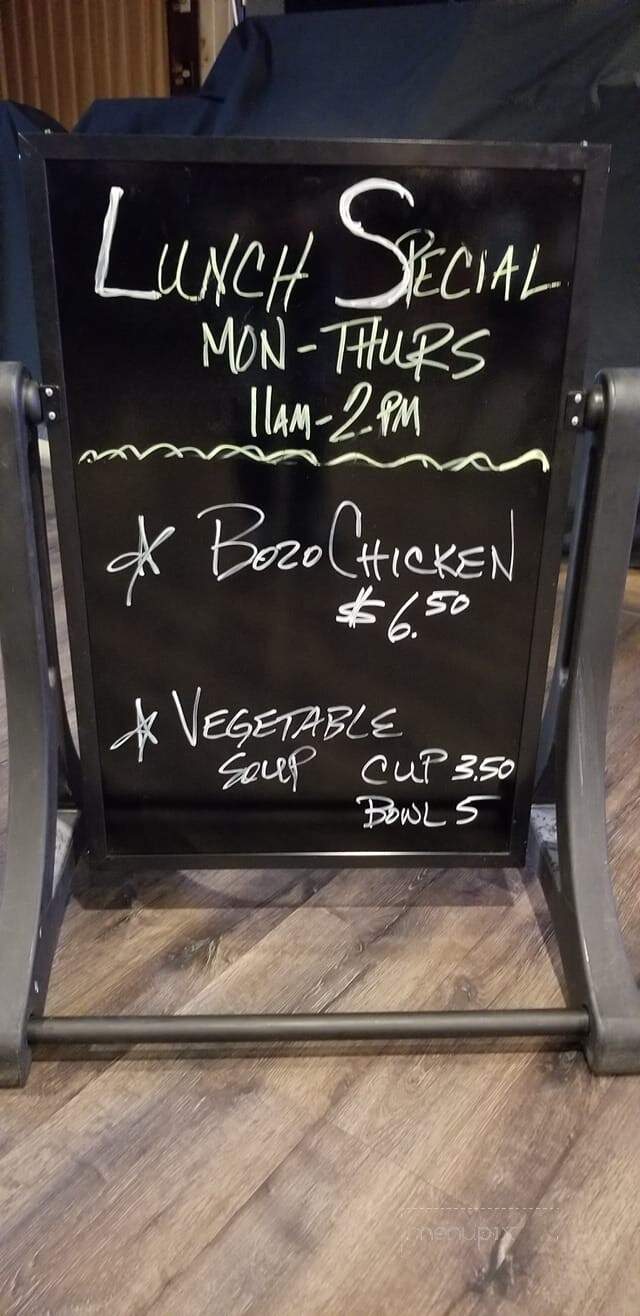 LUNCH SPECIAL
MON-THURS
11AM-2PM
BOZO CHICKEN
$6.50
VEGETABLE
SOUP CUP 3.50
BOWL 5
menupix